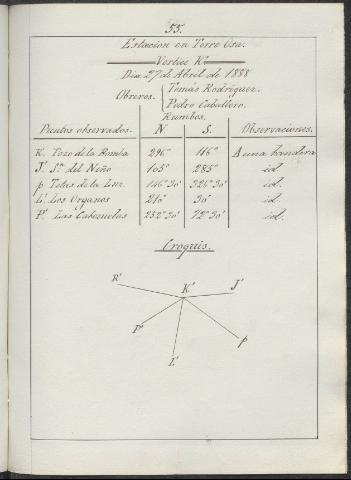 55.
Estacion en Torre Osa.
Vertice K'
Dia 27 de Abril de 1888
Obreros. Tomás Rodriguez.
Pedro Caballero.
Rumbos.
Puntos observados. N. S. Observaciones.
K. Pozo de la Bomba 296° 116° A una bandera
J'. del Niño 105° 285° id.
p Tetas de la 146°30' 326°30' id.
L'. Los Organos 210° 30° id.
P'. Las Cabezuelas 252°30' 72°30' id.
Croquis.
R' K' J'
P' p
L'